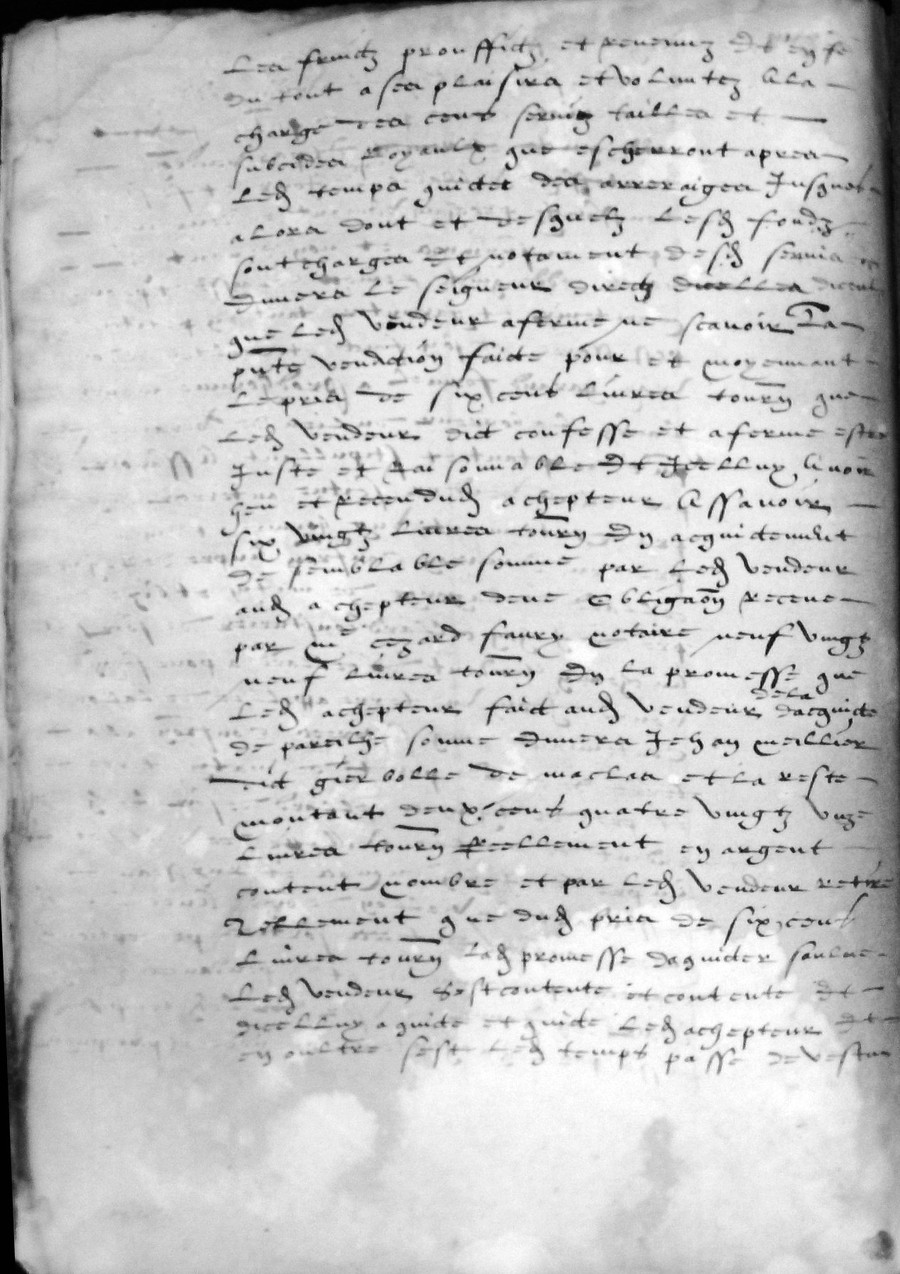 Les fruictz prouffictz et revenuz et en fe
du tout a ses plaisirs et voluntez A la
charge des cens serviz tailles et
subcides Royaulx que escherront apres
Led temps quicte des arreraiges Jusques
alors dont et desquelz Lesd fondz
sont charges et notament desd servis
envers Le seigneur direct dicelles
que Led vendeur aferme ne scavoir La
pnte vendition faicte pour et moyennant
Le pris de six cens Livres tourn que
Led vendeur dict confesse et aferme estre
Juste et Raisonnable et Jcelluy Avoir
heu et Receu dud achepteur Assavoir
six vingtz Livres tourn En acquictement
de semblable somme par Led vendeur
aud achepteur deue Obligaon Receue
par me faury notaire neuf vingtz
neuf Livres tourn En La promesse que
Led achepteur faict aud vendeur de la dacquicte
de pareilhe somme Envers Jehan meillier
dict bolle de maclas et La reste
montant deux cens quatre vingtz unze
Livres tourn Reellement en argent
content nombre et par Led vendeur retire
Tellement que dud pris de six cens
Livres tourn Lad promesse daquicter saulve
Led vendeur sest contente et contente et
dicelluy a quicte et quicte Led achepteur et
en oultre sest Led temps passe devestu